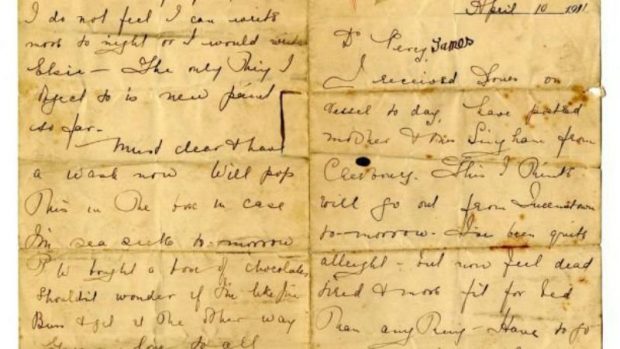 I do not feel I can write
more to night or I would write
Elsie – The only thing I
object to is new paint
so far –
Must clear & have
a wash now Will pop
This in The box in case
I'm sea sick to-morrow
P W bought a box of chocolates,
Shouldn't wonder if I'm like Jim
& get it The other way
love to all
April 10 1911
Dr Percy James
I received yours on
vessel to day, have posted
mother & Miss Lingham from
Cherbourg. This I Think
will go out from Queenstown
to-morrow. I've been quite
allright – but now feel dead
tired & more fit for bed
Than any Thing – Have to go